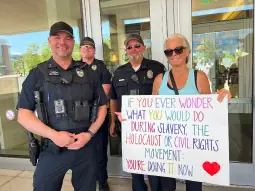 IF YOU EVER WONDER
WHAT YOU WOULD DO
DURING SLAVERY, THE
HOLOCAUST OR CIVIL RIGHTS
MOVEMENT:
YOU'RE DOING IT NOW